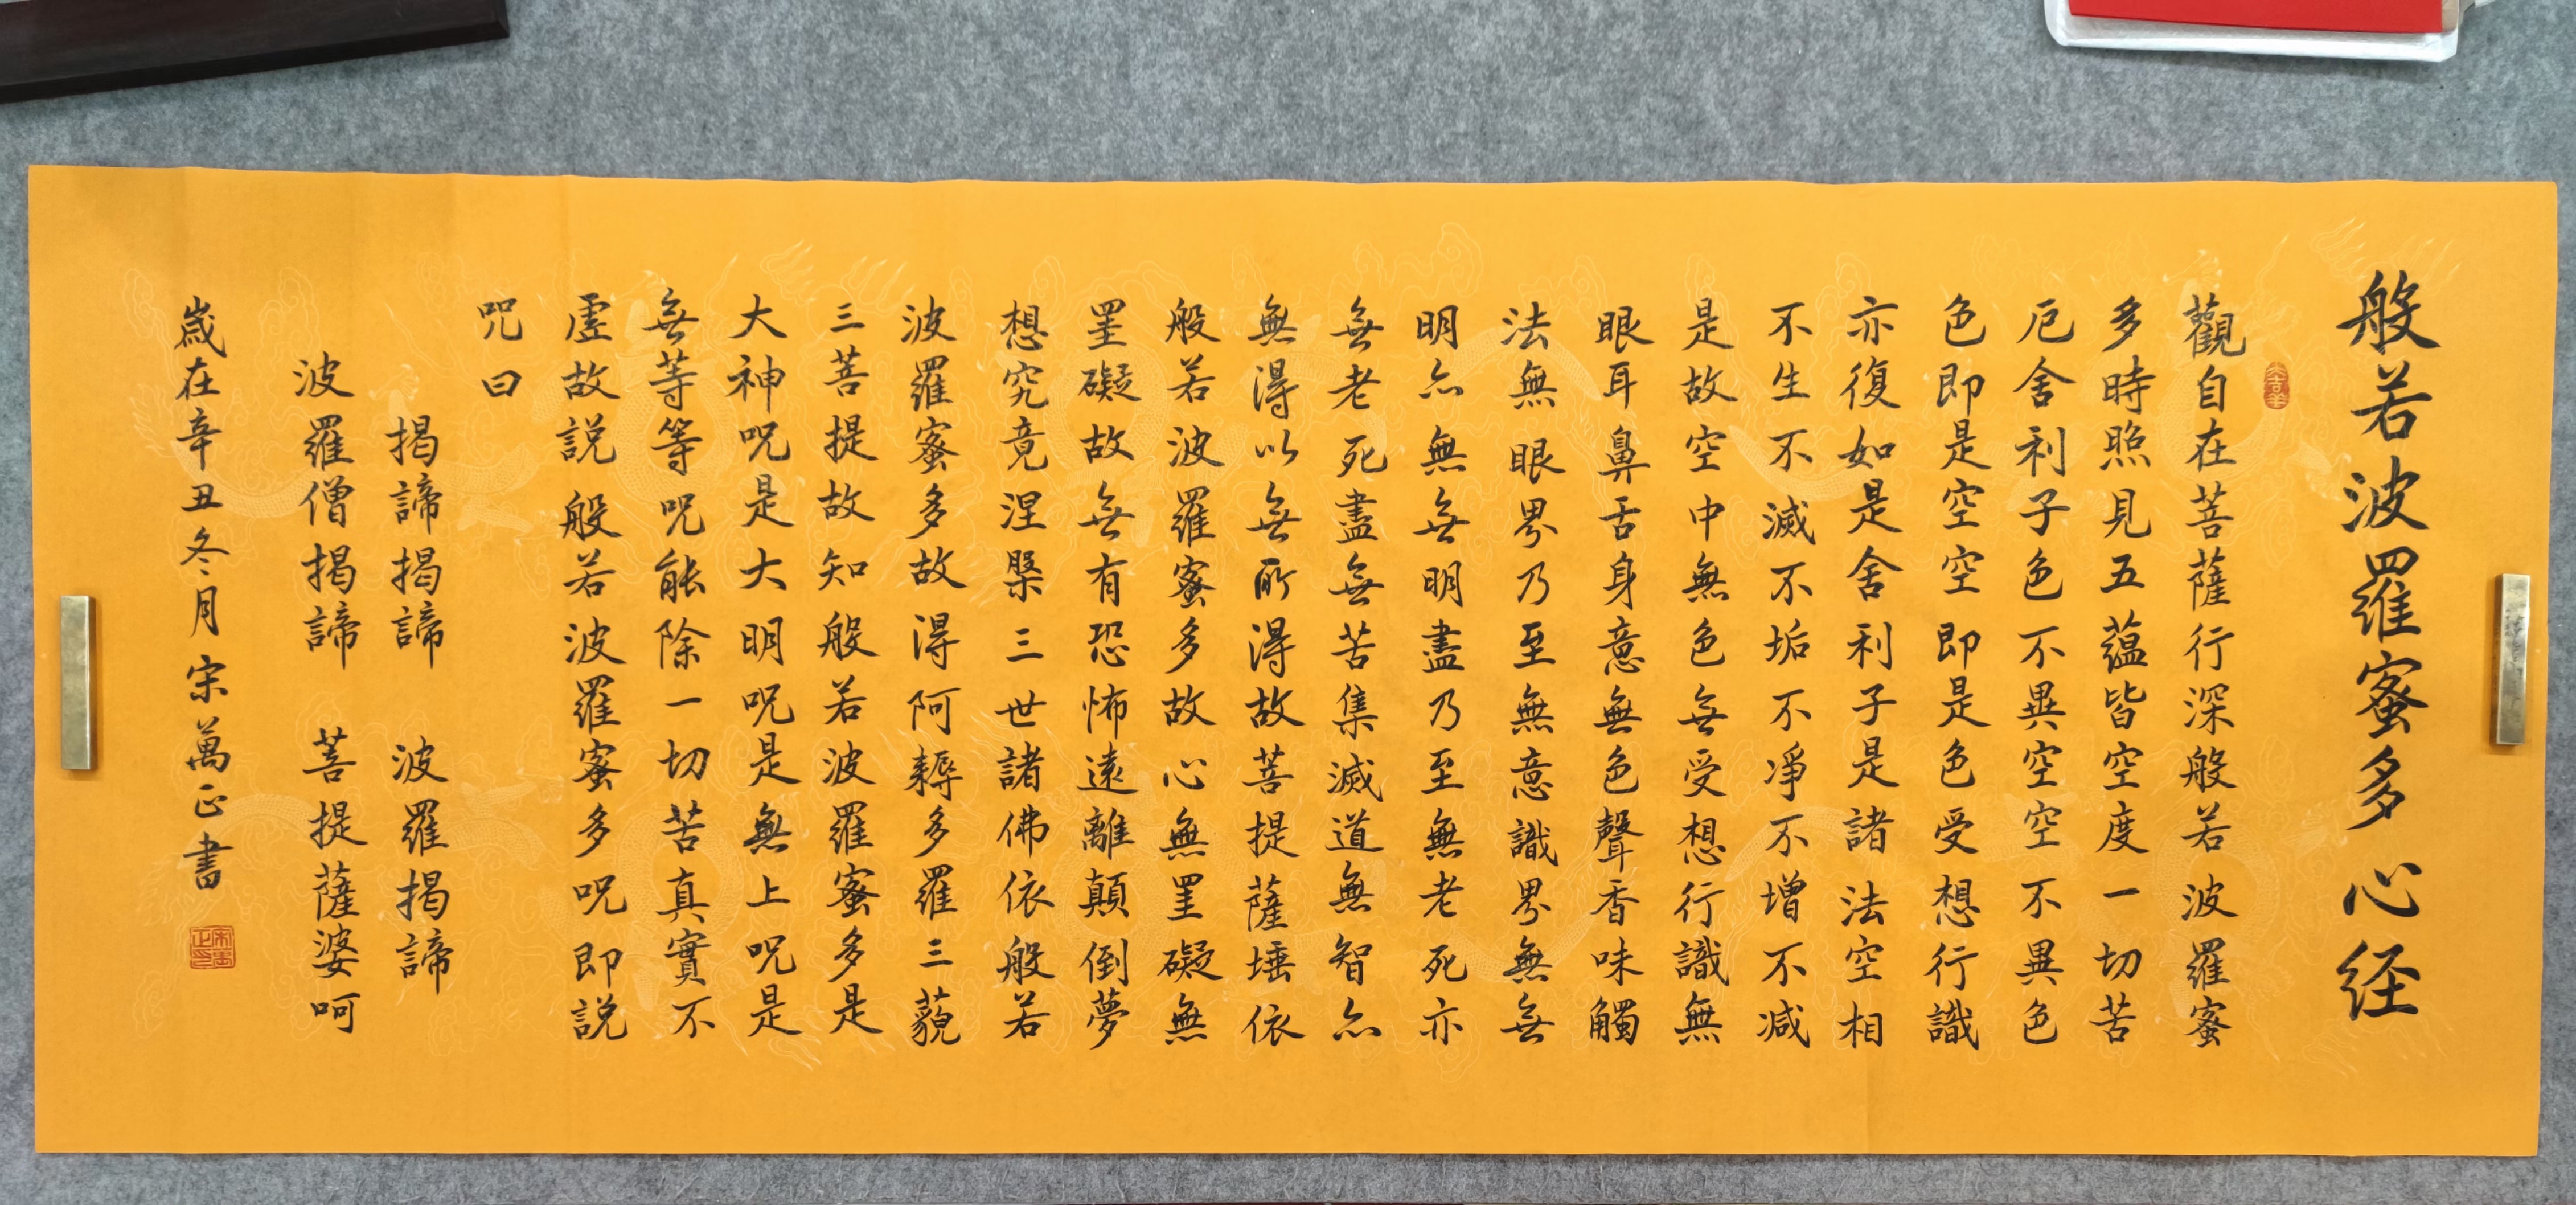 般若波羅蜜多心经
觀自在菩薩行深般若波羅蜜
多時照見五藴皆空度一切苦
厄舍利子色不異空空不異色
色即是空空即是色受想行識
亦復如是舍利子是諸法空相
不生不滅不垢不淨不增不減
是故空中無色無受想行識無
眼耳鼻舌身意無色聲香味觸
法無眼界乃至無意識界無無
明亦無無明盡乃至無老死亦
無老死盡無苦集滅道無智亦
無得以無所得故菩提薩埵依
般若波羅蜜多故心無罣礙無
罣礙故無有恐怖遠離顛倒夢
想究竟涅槃三世諸佛依般若
波羅蜜多故得阿耨多羅三藐
三菩提故知般若波羅蜜多是
大神呪是大明呪是無上呪是
無等等呪能除一切苦真實不
虛故説般若波羅蜜多呪即説
呪曰
揭諦揭諦 波羅揭諦
波羅僧揭諦 菩提薩婆呵
歲在辛丑冬月宋萬正書
宋萬正印